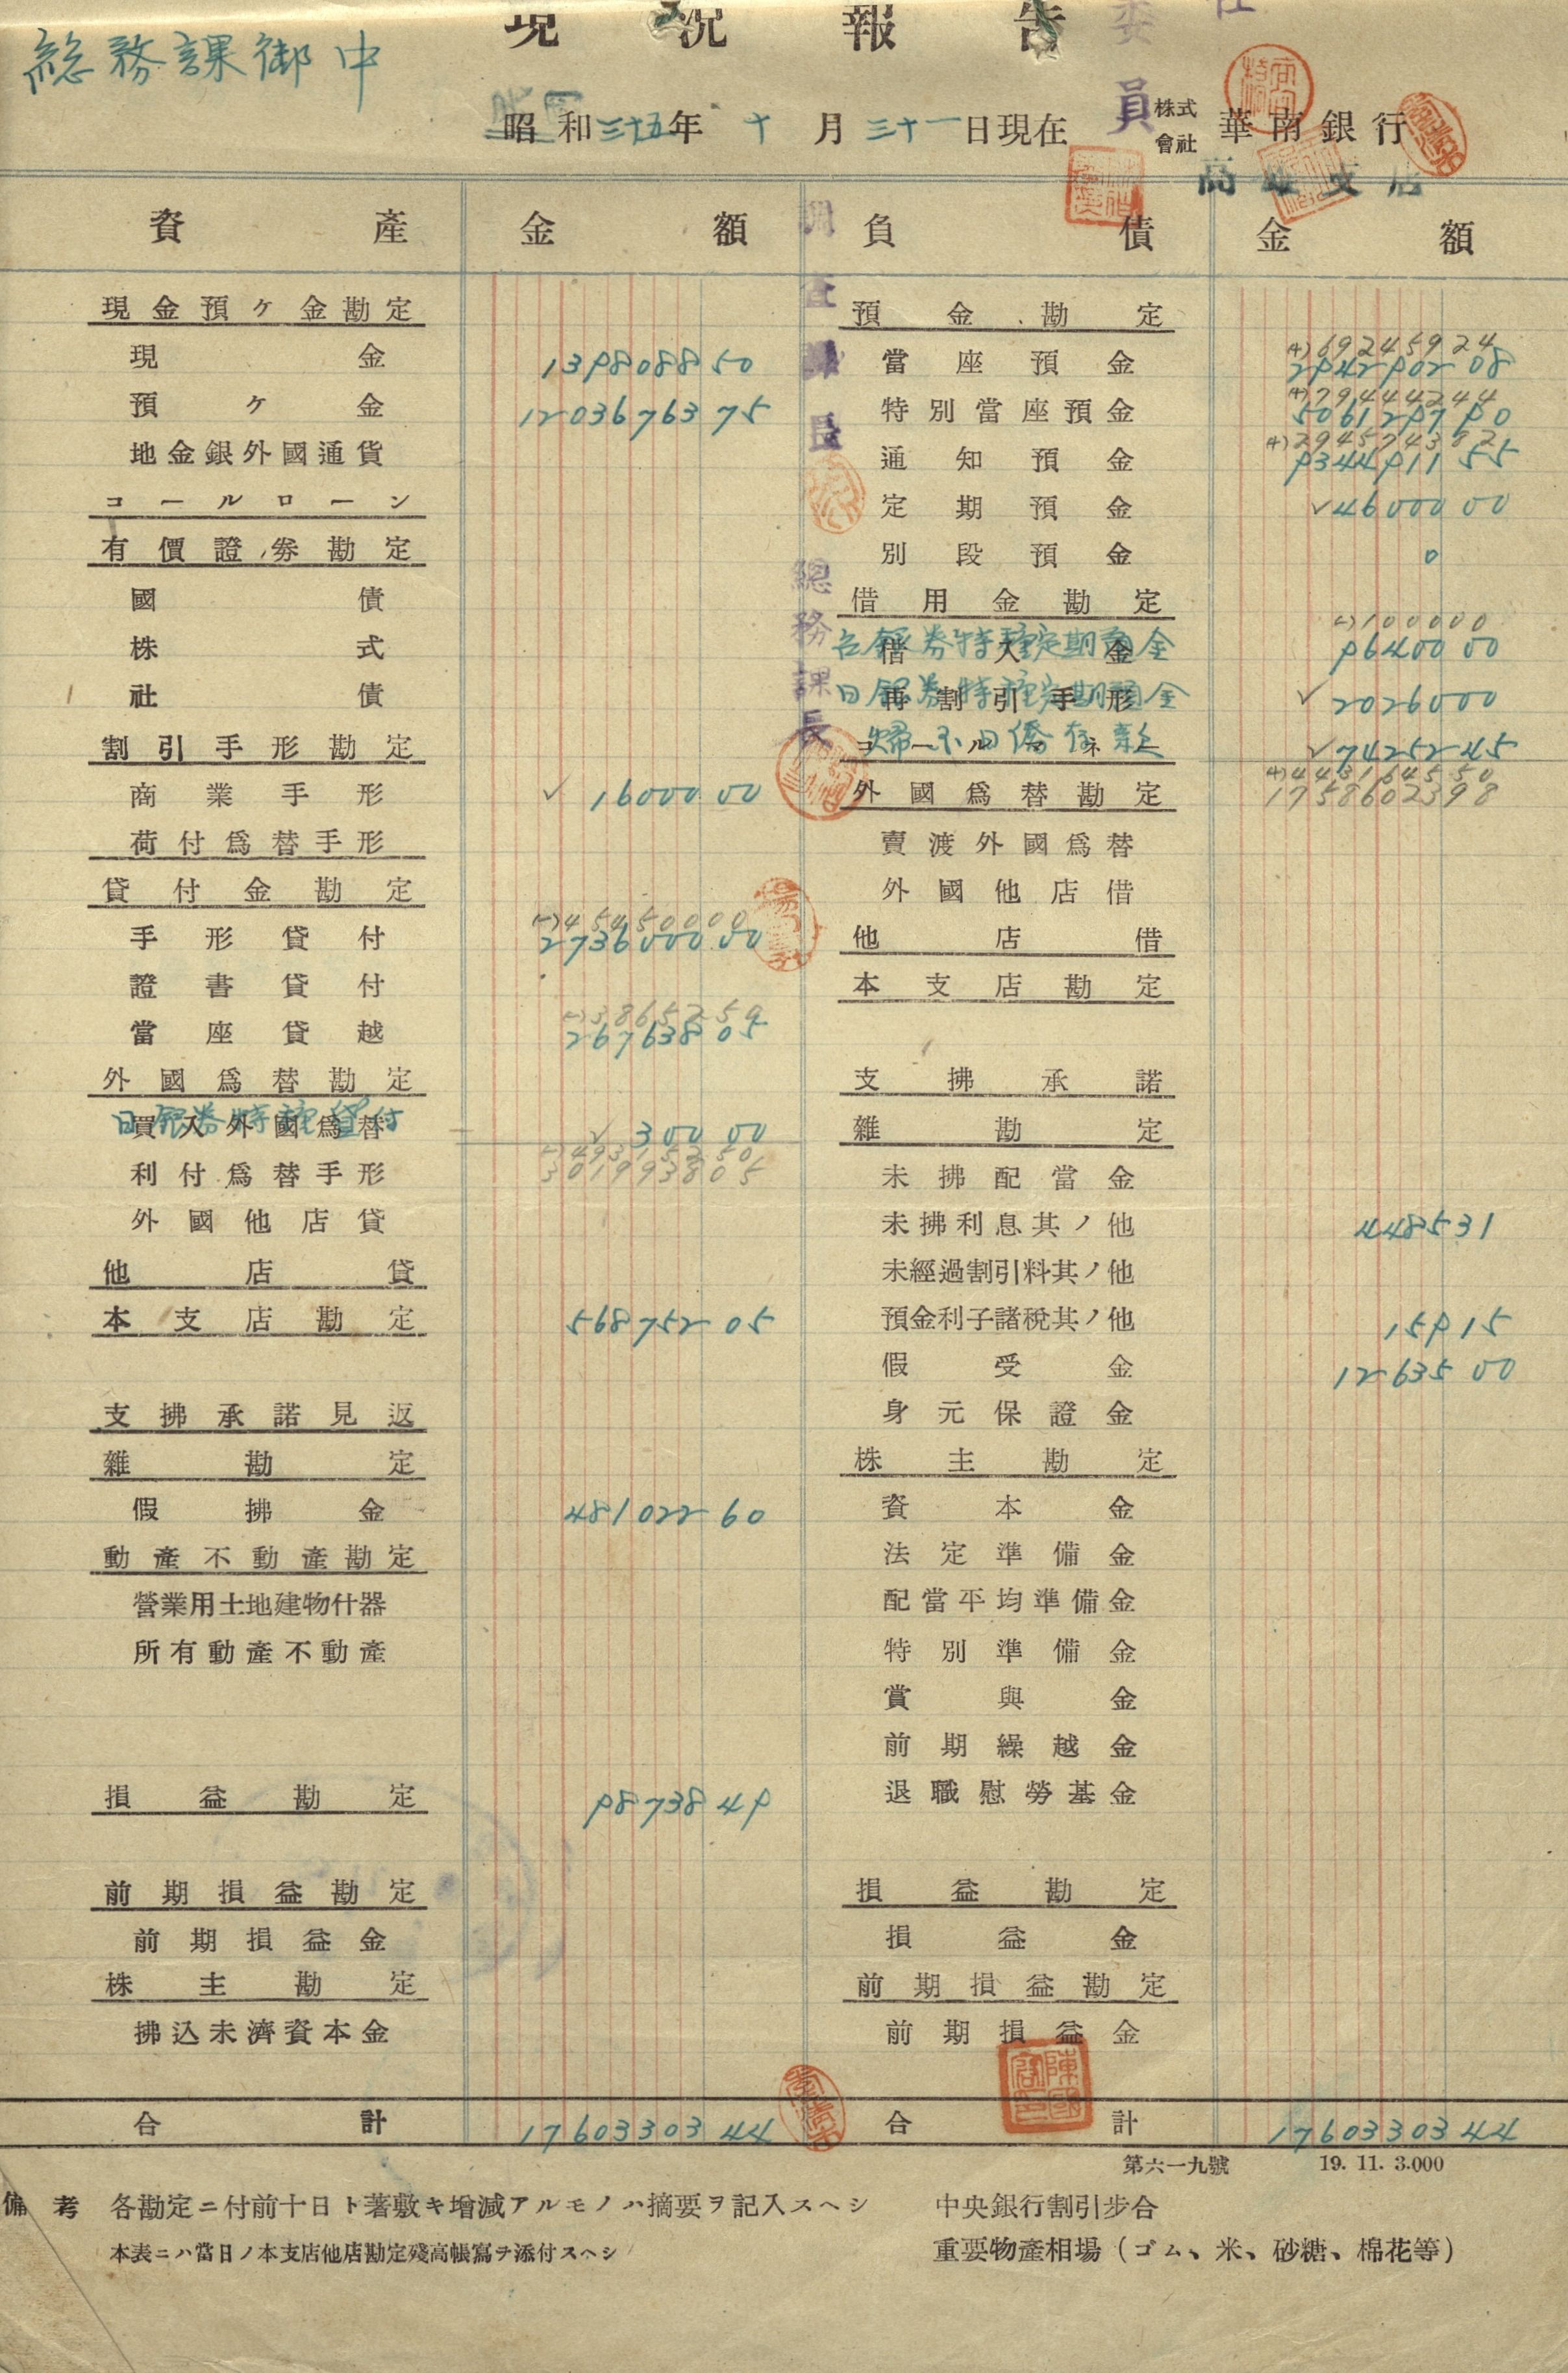 現況報告
総務課御中
昭和三十五年十月三十一日現在
委員
株式會社 華南銀行
高雄支店
資產 金額 負債 金額
調查課長
總務課長
現金預ケ金勘定
現金 1398088 50
預ケ金 12036763 75
地金銀外國通貨
コールローン
有價證券勘定
國債
株式
社債
割引手形勘定
商業手形 ✓ 16000 00
荷付爲替手形
貸付金勘定
(-)45450000
手形貸付 2736000 00
證書貸付
(-)3865259
當座貸越 267638 05
外國爲替勘定
買入外國爲替
日銀券特種貸付 ✓ 300 00
(-)49315250
301993805
利付爲替手形
外國他店貸
他店貸
本支店勘定 568752 05
支拂承諾見返
雜勘定
假拂金 481022 60
動產不動產勘定
營業用土地建物什器
所有動產不動產
損益勘定 98738 49
前期損益勘定
前期損益金
株主勘定
拂込未濟資本金
合計 17603303 44
預金勘定
(+)69245924
當座預金 2942902 08
(+)79444244
特別當座預金 5061297 90
(+)294574382
通知預金 9344911 55
定期預金 ✓46000 00
別段預金 0
借用金勘定
(-)100000
借入金
台銀券特種定期預金 96400 00
再割引手形
日銀券特種定期預金 ✓ 20260 00
コールマネー
✓74252 45
(+)443164550
1758602398
外國爲替勘定
賣渡外國爲替
外國他店借
他店借
本支店勘定
支拂承諾
雜勘定
未拂配當金
未拂利息其ノ他 4485 31
未經過割引料其ノ他
預金利子諸稅其ノ他 159 15
假受金 12635 00
身元保證金
株主勘定
資本金
法定準備金
配當平均準備金
特別準備金
賞與金
前期繰越金
退職慰勞基金
損益勘定
損益金
前期損益勘定
前期損益金
合計 17603303 44
第六一九號 19. 11. 3.000
備考 各勘定ニ付前十日ト著敷キ增減アルモノハ摘要ヲ記入スヘシ
本表ニハ當日ノ本支店他店勘定殘高帳寫ヲ添付スヘシ
中央銀行割引步合
重要物產相場（ゴム、米、砂糖、棉花等）